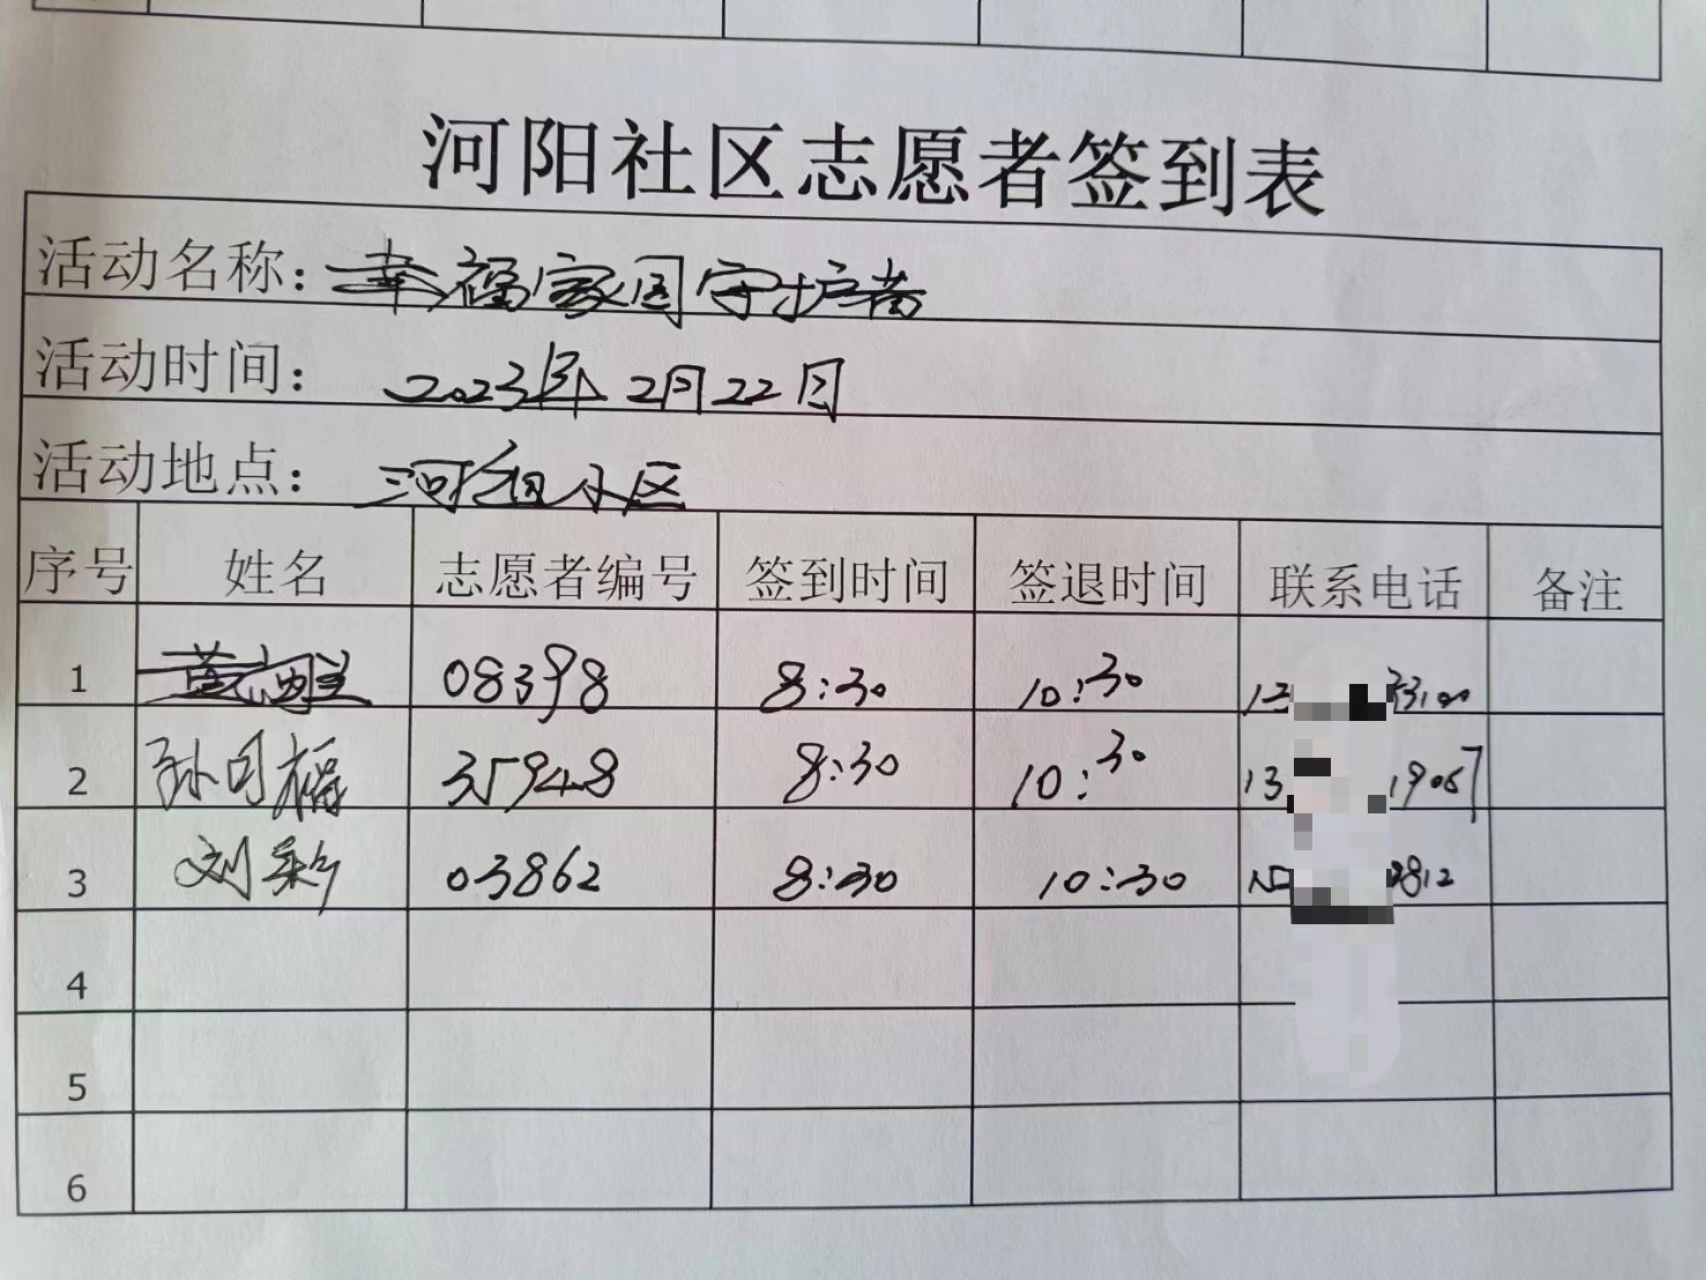 河阳社区志愿者签到表
活动名称：幸福家园守护者
活动时间： 2023年2月22日
活动地点： 河阳小区
序号 姓名 志愿者编号 签到时间 签退时间 联系电话 备注
1 08398 8:30 10:30
2 孙 福 35948 8:30 10:30 13 19067
3 刘 03862 8:30 10:30 2812
4
5
6